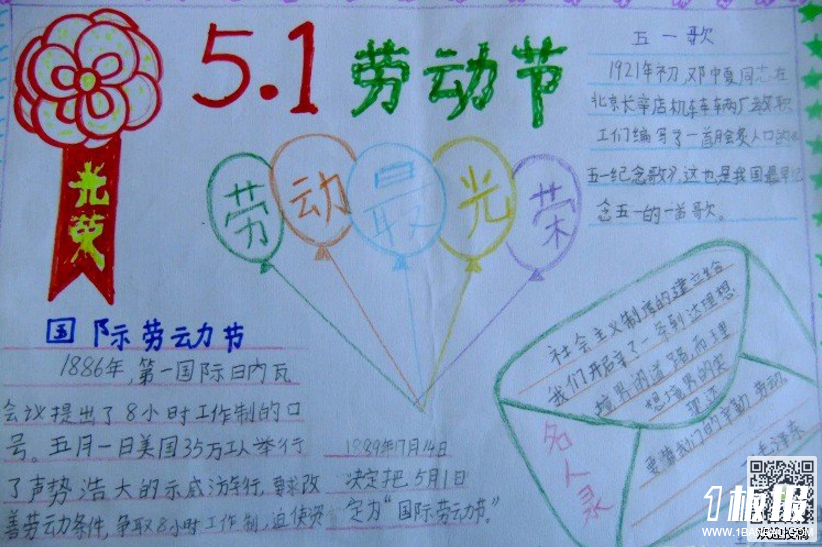 5.1 劳动节
光荣
劳动最光荣
五一歌
1921年初,邓中夏同志在
北京长辛店机车车辆厂教职
工们编写了一首脍炙人口的《
五一纪念歌》,这也是我国最早纪
念五一的一首歌。
国际劳动节
1886年,第一国际日内瓦
会议提出了8小时工作制的口
号。五月一日美国35万工人举行
了声势浩大的示威游行,要求改
善劳动条件,争取8小时工作制,迫使资
1889年7月14日
决定把5月1日
定为“国际劳动节。”
社会主义制度的建立给
我们开辟了一条到达理想
境界的道路,而理
想境界的实
现还
要靠我们的辛勤劳动。
毛泽东
名人录
1板报
WWW.1BANBAO.COM
欢迎投稿